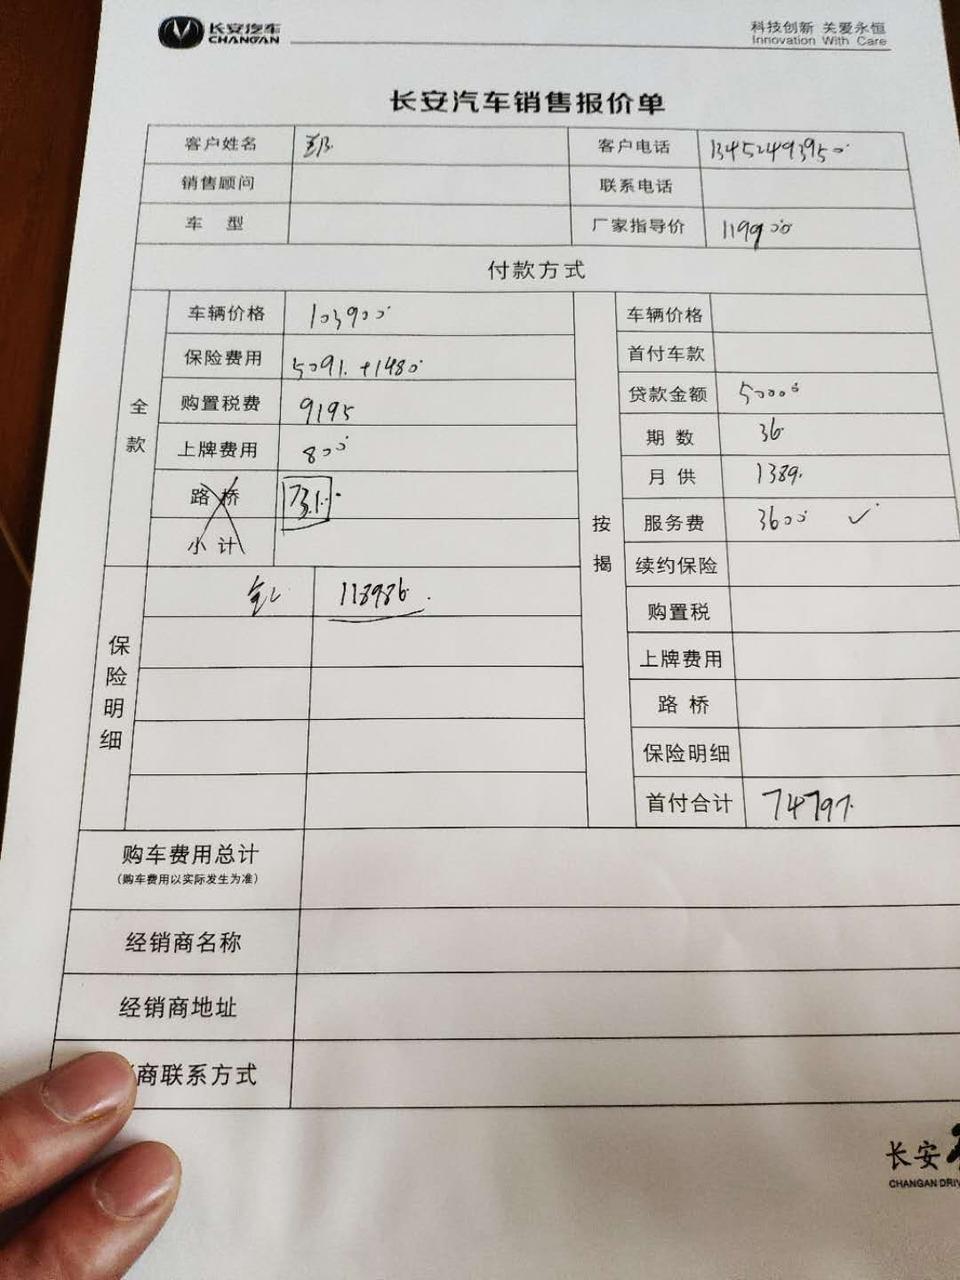 长安汽车
CHANGAN
科技创新 关爱永恒
Innovation With Care
长安汽车销售报价单
客户姓名
客户电话 13452493950
销售顾问 联系电话
车 型 厂家指导价 119900
付款方式
全款
车辆价格 103900
保险费用 5091. +1480
购置税费 9195
上牌费用 800
路桥 731.
小计
保险明细
118986.
按揭
车辆价格
首付车款
贷款金额 50000
期数 36
月供 1389.
服务费 3600 ✓
续约保险
购置税
上牌费用
路桥
保险明细
首付合计 74797.
购车费用总计
(购车费用以实际发生为准)
经销商名称
经销商地址
商联系方式
长安
CHANGAN DRIV